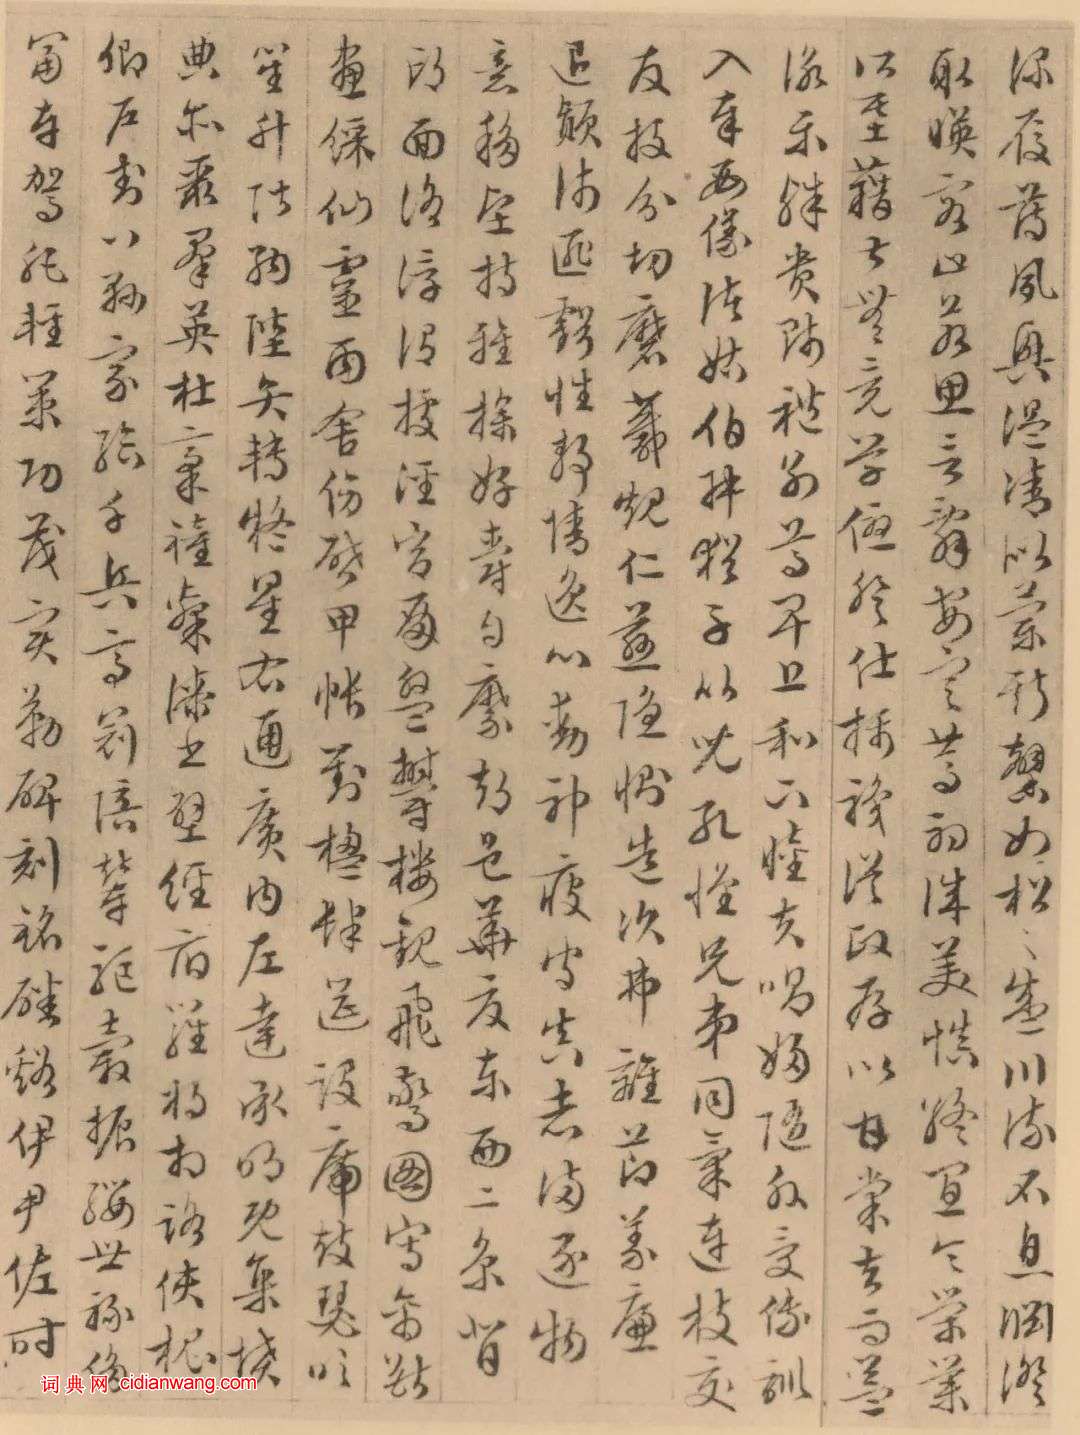 深履薄夙興溫凊似蘭斯馨如松之盛川流不息淵澄
取暎容止若思言辭安定篤初誠美慎終宜令榮業
所基藉甚無竟學優登仕攝職從政存以甘棠去而益
詠樂殊貴賤禮別尊卑上和下睦夫唱婦隨外受傅訓
入奉母儀諸姑伯叔猶子比兒孔懷兄弟同氣連枝交
友投分切磨箴規仁慈隱惻造次弗離節義廉
退顛沛匪虧性靜情逸心動神疲守真志滿逐物
意移堅持雅操好爵自縻都邑華夏東西二京背
邙面洛浮渭據涇宮殿盤鬱樓觀飛驚圖寫禽獸
畫綵仙靈丙舍傍啟甲帳對楹肆筵設席鼓瑟吹
笙升階納陛弁轉疑星右通廣內左達承明既集墳
典亦聚羣英杜稾鍾隸漆書壁經府羅將相路俠槐
卿戶封八縣家給千兵高冠陪輦驅轂振纓世祿侈
富車駕肥輕策功茂實勒碑刻銘磻谿伊尹佐時
词典网 cidianwang.com